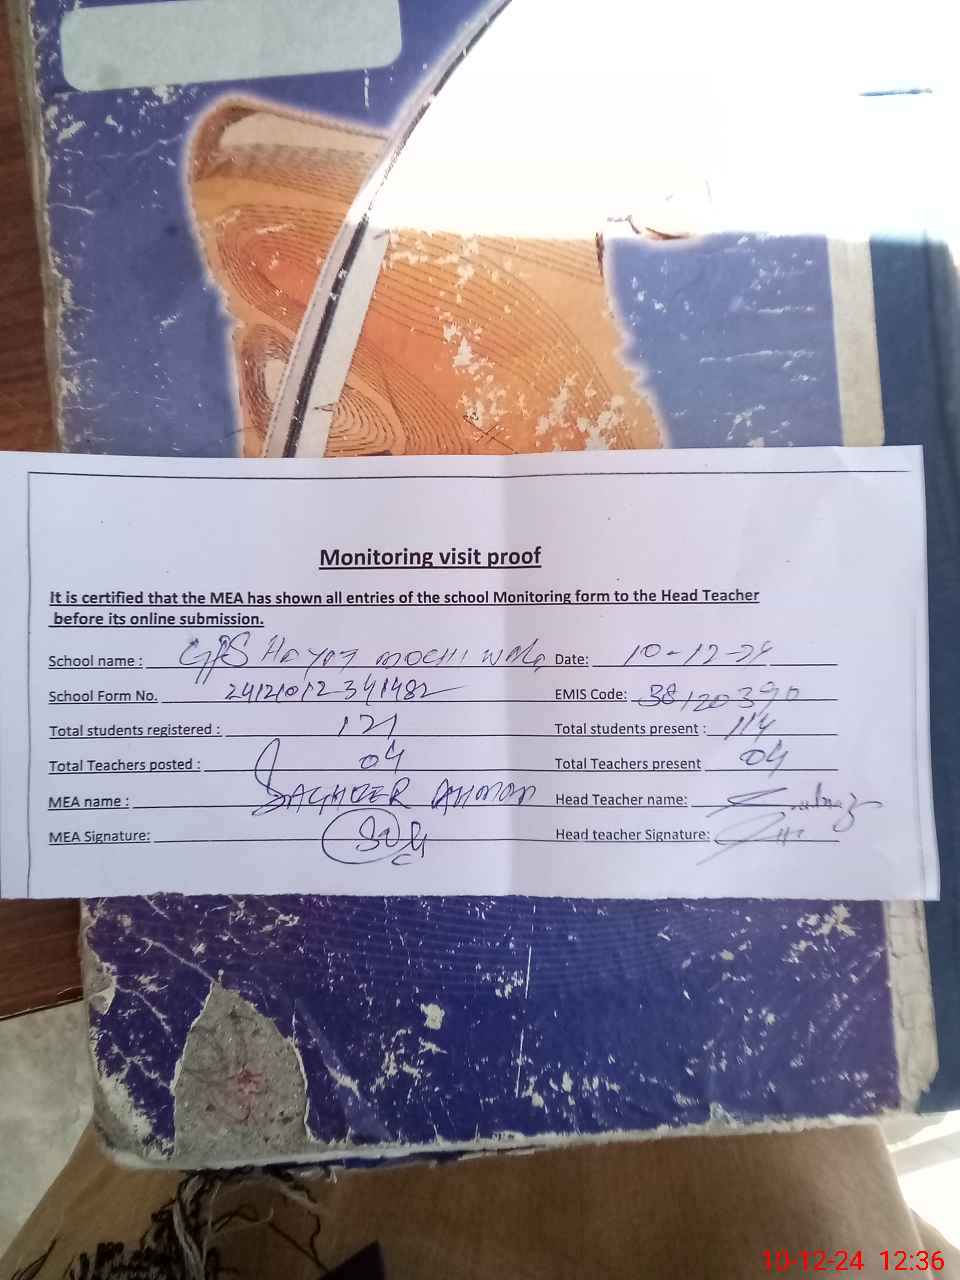 Monitoring visit proof
It is certified that the MEA has shown all entries of the school Monitoring form to the Head Teacher
before its online submission.
School name : GPS Hayat mochi wala Date: 10-12-24
School Form No. 24121012341482 EMIS Code: 38120390
Total students registered : 121 Total students present : 114
Total Teachers posted : 04 Total Teachers present 04
MEA name : SAGHEER AHMAD Head Teacher name:
MEA Signature: Head teacher Signature:
10-12-24 12:36